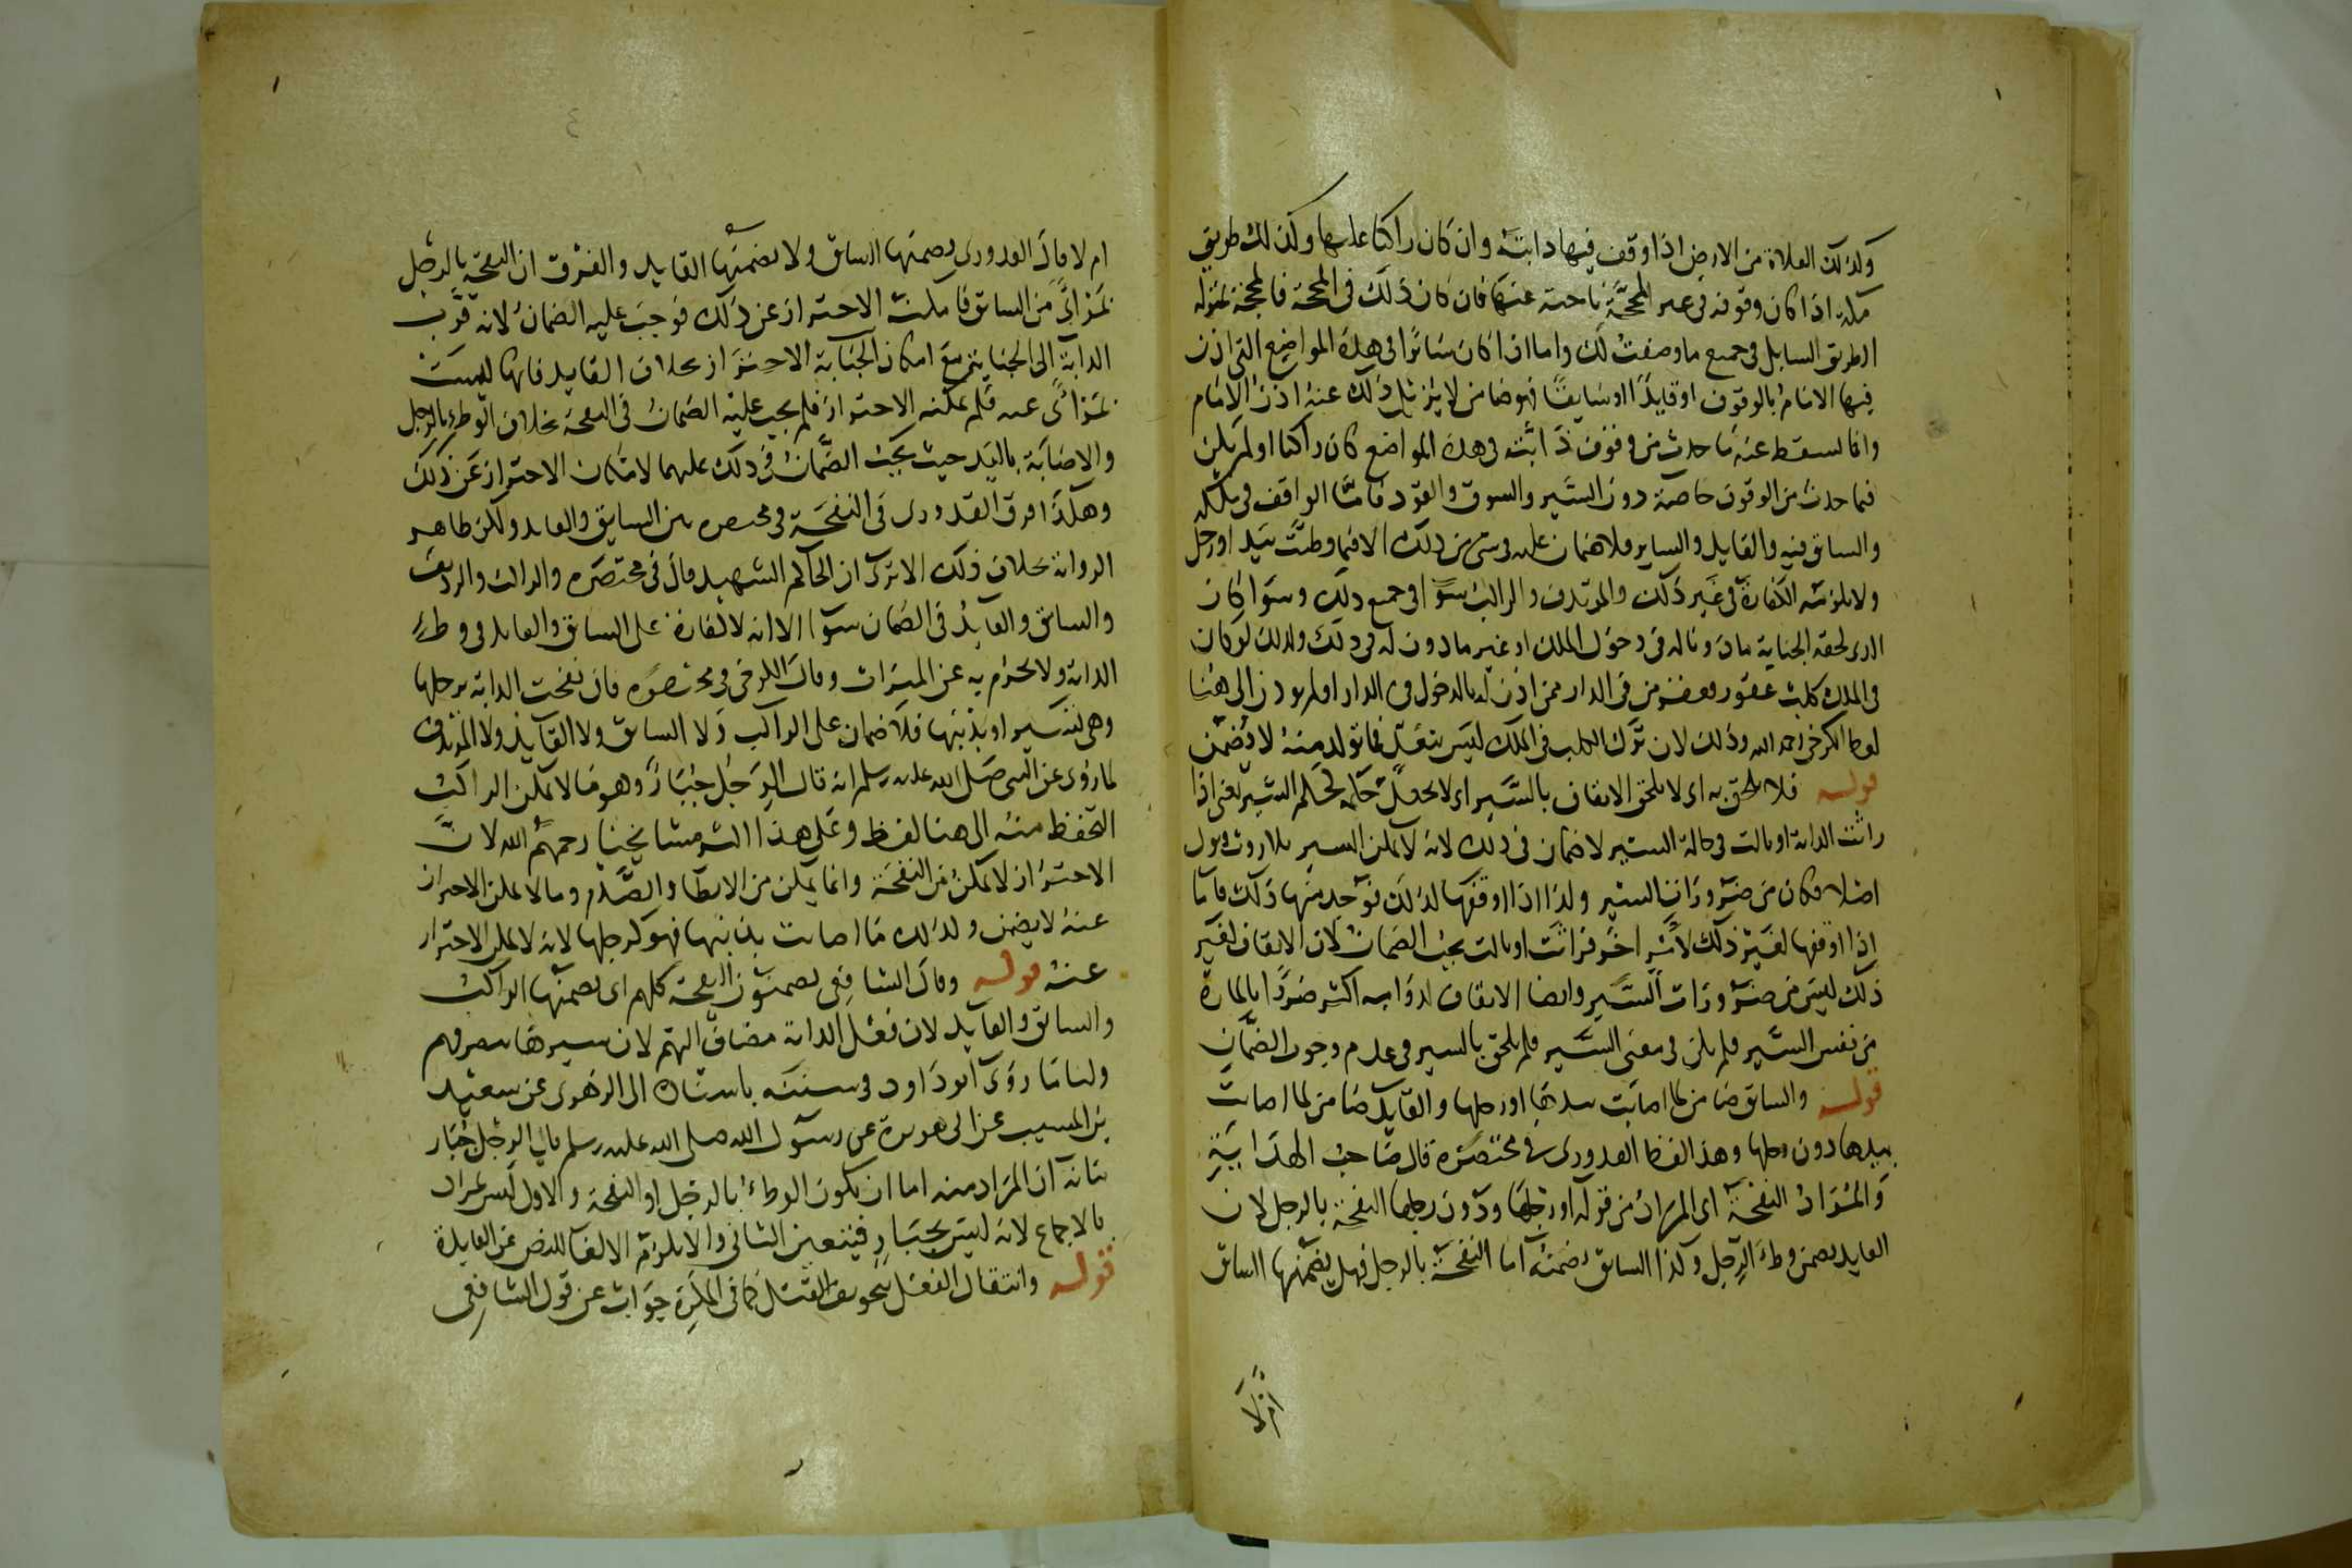 وكذلك الفلاة من الارض اذا وقف فيها دابته وان كان راكبا عليها وكذلك طريق
مكة اذا كان وقوفه في غير المحجة ناحية عنها فان كان ذلك في المحجة فالمحجة بمنزلة
الطريق السابل في جميع ما وصفت لك واما اذا كان سائرا في هذه المواضع التي اذن
فيها الامام بالوقوف او قايدا او سايقا فهو ضامن لا يزيل ذلك عنه اذن الامام
وانما يسقط عنه ما حدث من وقوف دابته في هذه المواضع كان راكبا او لم يكن
فما حدث من الوقوف خاصة دون السير والسوق والقود فاما الواقف في ملكه
والسائق فيه والقايد والساير فلا ضمان عليه في شي من ذلك الا فيما وطئت بيد او رجل
ولا يلزمه الكفارة في غير ذلك والمرتدف والراكب سوا في جميع ذلك وسوا كان
الذي لحقه الجناية ماذونا له في دخول الملك او غير ماذون له في ذلك وكذلك لو كان
في الملك كلب عقور فعقر من في الدار ممن اذن له بالدخول في الدار او لم يوذن الى هنا
لفظ الكرخي رحمه الله وذلك لان ترك الكلب في الملك ليس بتعد فما تولد منه لا يضمن
قوله فلا يلحق به اى لا يلحق الايقاف بالسير اى لا يجعل حكمه كحكم السير يعني اذا
راثت الدابة او بالت في حالة السير لا ضمان في ذلك لانه لا يمكن السير بلا روث وبول
اصلا فكان من ضرورات السير وكذا اذا اوقفها لذلك فوجد منها ذلك فاما
اذا اوقفها لغير ذلك لامر اخر فراثت او بالت يجب الضمان لان الايقاف لغير
ذلك ليس من ضرورات السير وايضا الايقاف لدوابه اكثر ضررا بالمارة
من نفس السير فلم يكن في معنى السير فلم يلحق بالسير في عدم وجوب الضمان
قوله والسائق ضامن لما اصابت بيدها او رجلها والقايد ضامن لما اصابت
بيدها دون رجلها وهذا لفظ القدوري في مختصره قال صاحب الهداية
والمراد النفحة اى المراد من قوله او رجلها ودون رجلها النفحة بالرجل لان
القايد يضمن وطء الرجل وكذا السائق يضمنه اما النفحة بالرجل فهل يضمنها السائق
ام لا
ام لا قال القدوري يضمنها السائق ولا يضمنها القايد والفرق ان النفحة بالرجل
بمراى من السائق فامكنه الاحتراز عن ذلك فوجب عليه الضمان لانه قرب
الدابة الى الجناية مع امكان الاحتراز بخلاف القايد فانها ليست
بمراى عنه فلم يمكنه الاحتراز فلم يجب عليه الضمان في النفحة بخلاف الوطء بالرجل
والاصابة باليد حيث يجب الضمان في ذلك عليهما لامكان الاحتراز عن ذلك
وهكذا فرق القدوري في النفحة في مختصره بين السايق والقايد ولكن ظاهر
الرواية بخلاف ذلك الا ترى ان الحاكم الشهيد قال في مختصره والراكب والرديف
والسائق والقايد في الضمان سوا الا انه لا كفارة على السائق والقايد في وطء
الدابة ولا يحرم به عن الميراث وقال الكرخي في مختصره فان نفحت الدابة برجلها
وهي تسير او بذنبها فلا ضمان على الراكب ولا السائق ولا القايد ولا المرتدف
لما روى عن النبي صلى الله عليه وسلم انه قال الرجل جبار وهو مما لا يمكن الراكب
التحفظ منه الى هنا لفظه وعلى هذا اكثر مشايخنا رحمهم الله لان
الاحتراز لا يمكن من النفحة وانما يمكن من الايطا والصدم وما لا يمكن الاحتراز
عنه لا يضمن وكذلك ما اصابت بذنبها فهو كرجلها لانه لا يمكن الاحتراز
عنه قوله وقال الشافعي يضمنون النفحة كلهم اى يضمنها الراكب
والسائق والقايد لان فعل الدابة مضاف اليهم لان سيرها بتصرفهم
ولنا ما روى ابو داود في سننه باسناده الى الزهري عن سعيد
بن المسيب عن ابي هريرة عن رسول الله صلى الله عليه وسلم قال الرجل جبار
بيانه ان المراد منه اما ان يكون الوطء بالرجل او النفحة والاول ليس بمراد
بالاجماع لانه ليس بجبار فيتعين الثاني والا يلزم الالغا للنص عن الفايدة
قوله وانتقال الفعل بتخويف القتل كما في المكره جواب عن قول الشافعي